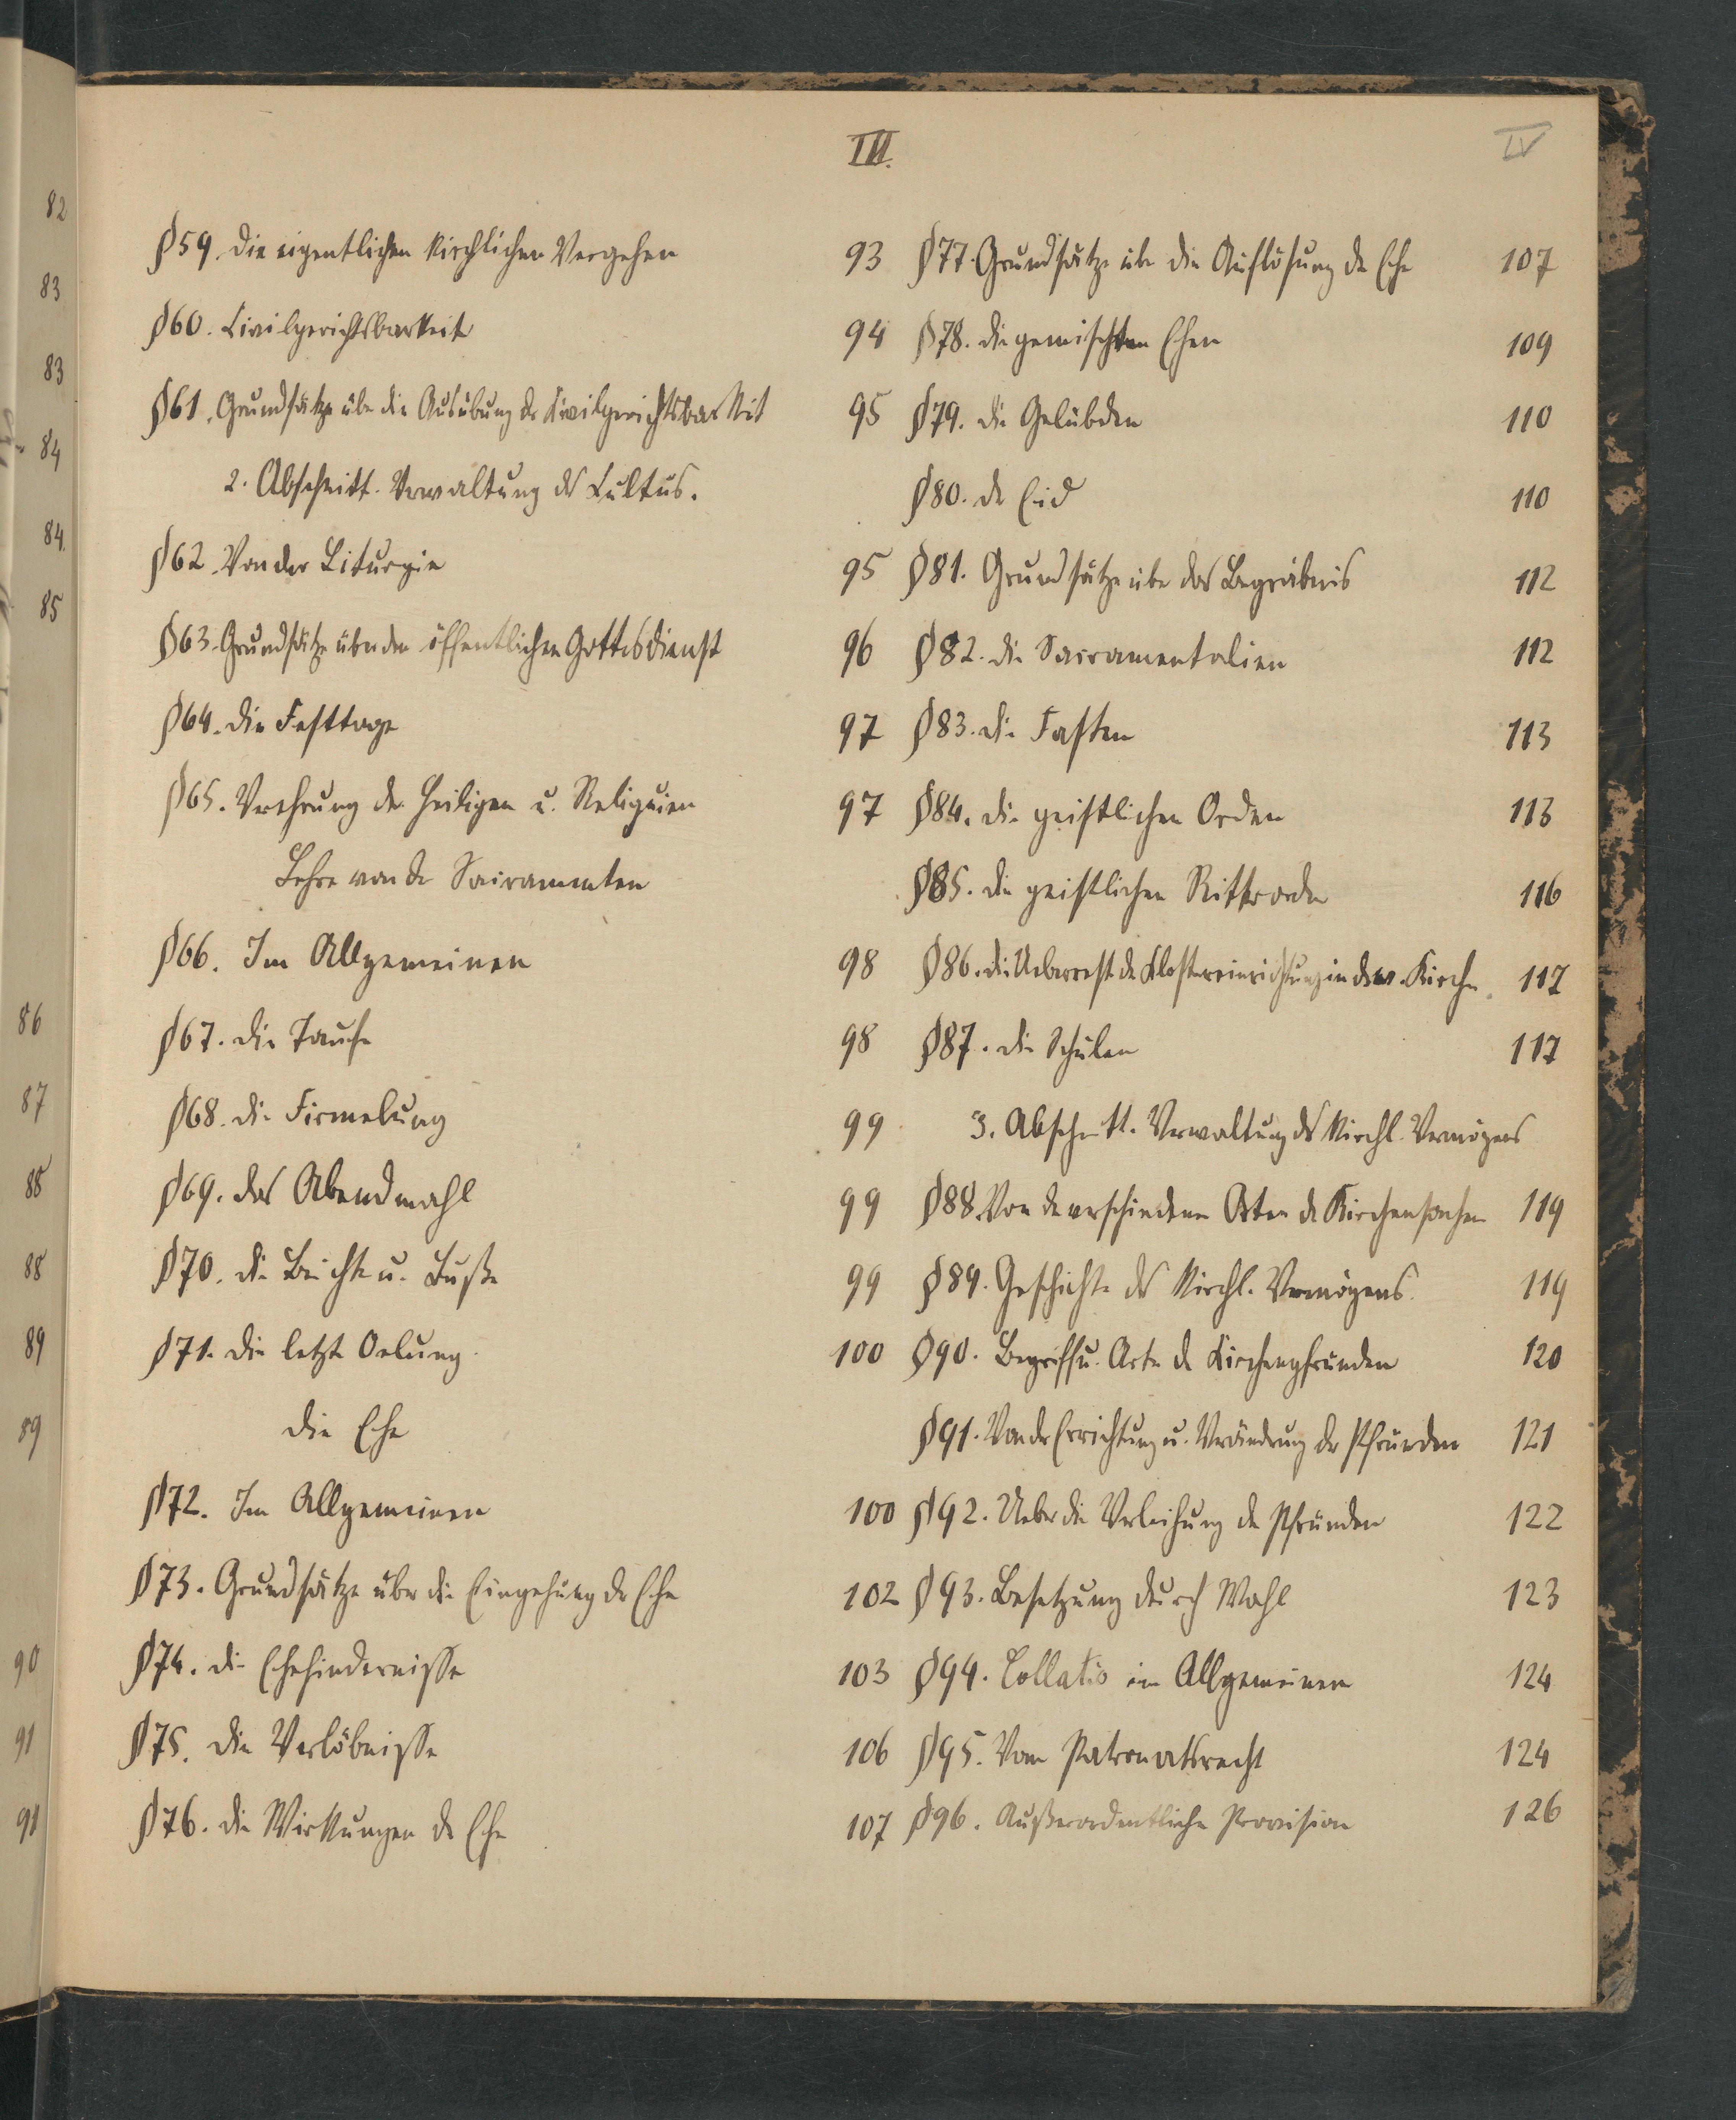 III.
IV
82
83
83
84
84.
85
86
87
88
88
89
89
90
91
91
§59. Die eigentlichen kirchlichen Vergehen 93
§60. Civilgerichtsbarkeit 94
§61. Grundsätze übe die Ausübung de Civilgerichtsbarkeit 95
2. Abschnitt. Verwaltung ds Cultus.
§62. Von der Liturgie 95
§63. Grundsätze über den öffentlichen Gottesdienst 96
§64. Die Festtage 97
§65. Verehrung der Heiligen u. Reliquien 97
Lehre von de Sacramenten
§66. Im Allgemeinen 98
§67. Die Taufe 98
§68. Die Firmelung 99
§69. Das Abendmahl 99
§70. Die Beichte u. Buße 99
§71. Die letzte Oelung 100
Die Ehe
§72. Im Allgemeinen 100
§73. Grundsätze über die Eingehung de Ehe 102
§74. Die Ehehindernisse 103
§75. Die Verlöbnisse 106
§76. Die Wirkungen de Ehe 107
§77. Grundsätze übe die Auflösung de Ehe 107
§78. Die gemischten Ehen 109
§79. Die Gelübden 110
§80. De Eid 110
§81. Grundsätze übe das Begräbnis 112
§82. Die Sacramentalien 112
§83. Die Fasten 113
§84. Die geistlichen Orden 113
§85. Die geistlichen Ritterorden 116
§86. Die Ueberreste de Klostereinrichtung in der ev. Kirche 117
§87. Die Schulen 117
3. Abschnitt. Verwaltung ds kirchl. Vermögens
§88. Von de verschiedenen Arten de Kirchensachen 119
§89. Geschichte ds kirchl. Vermögens. 119
§90. Begriff u. Arten de Kirchenpfründen 120
§91. Von de Errichtung u. Veränderung der Pfründen 121
§92. Ueber die Verleihung de Pfründen 122
§93. Besetzung durch Wahl 123
§94. Collatio im Allgemeinen 124
§95. Vom Patronatsrecht 124
§96. Außerordentliche Provision 126